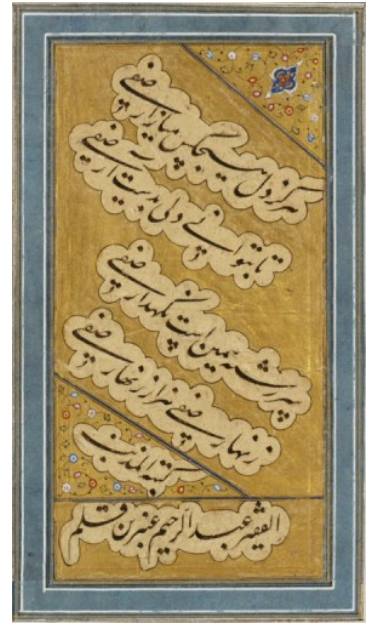 هرگز دل هیچکس میازار صفی
تا بتوانی دلی بدست آر صفی
سررشته همین است نگهدار صفی
زنهار صفی هزار زنهار صفی
کتبه المذنب
الفقیر عبدالرحیم عنبرین قلم